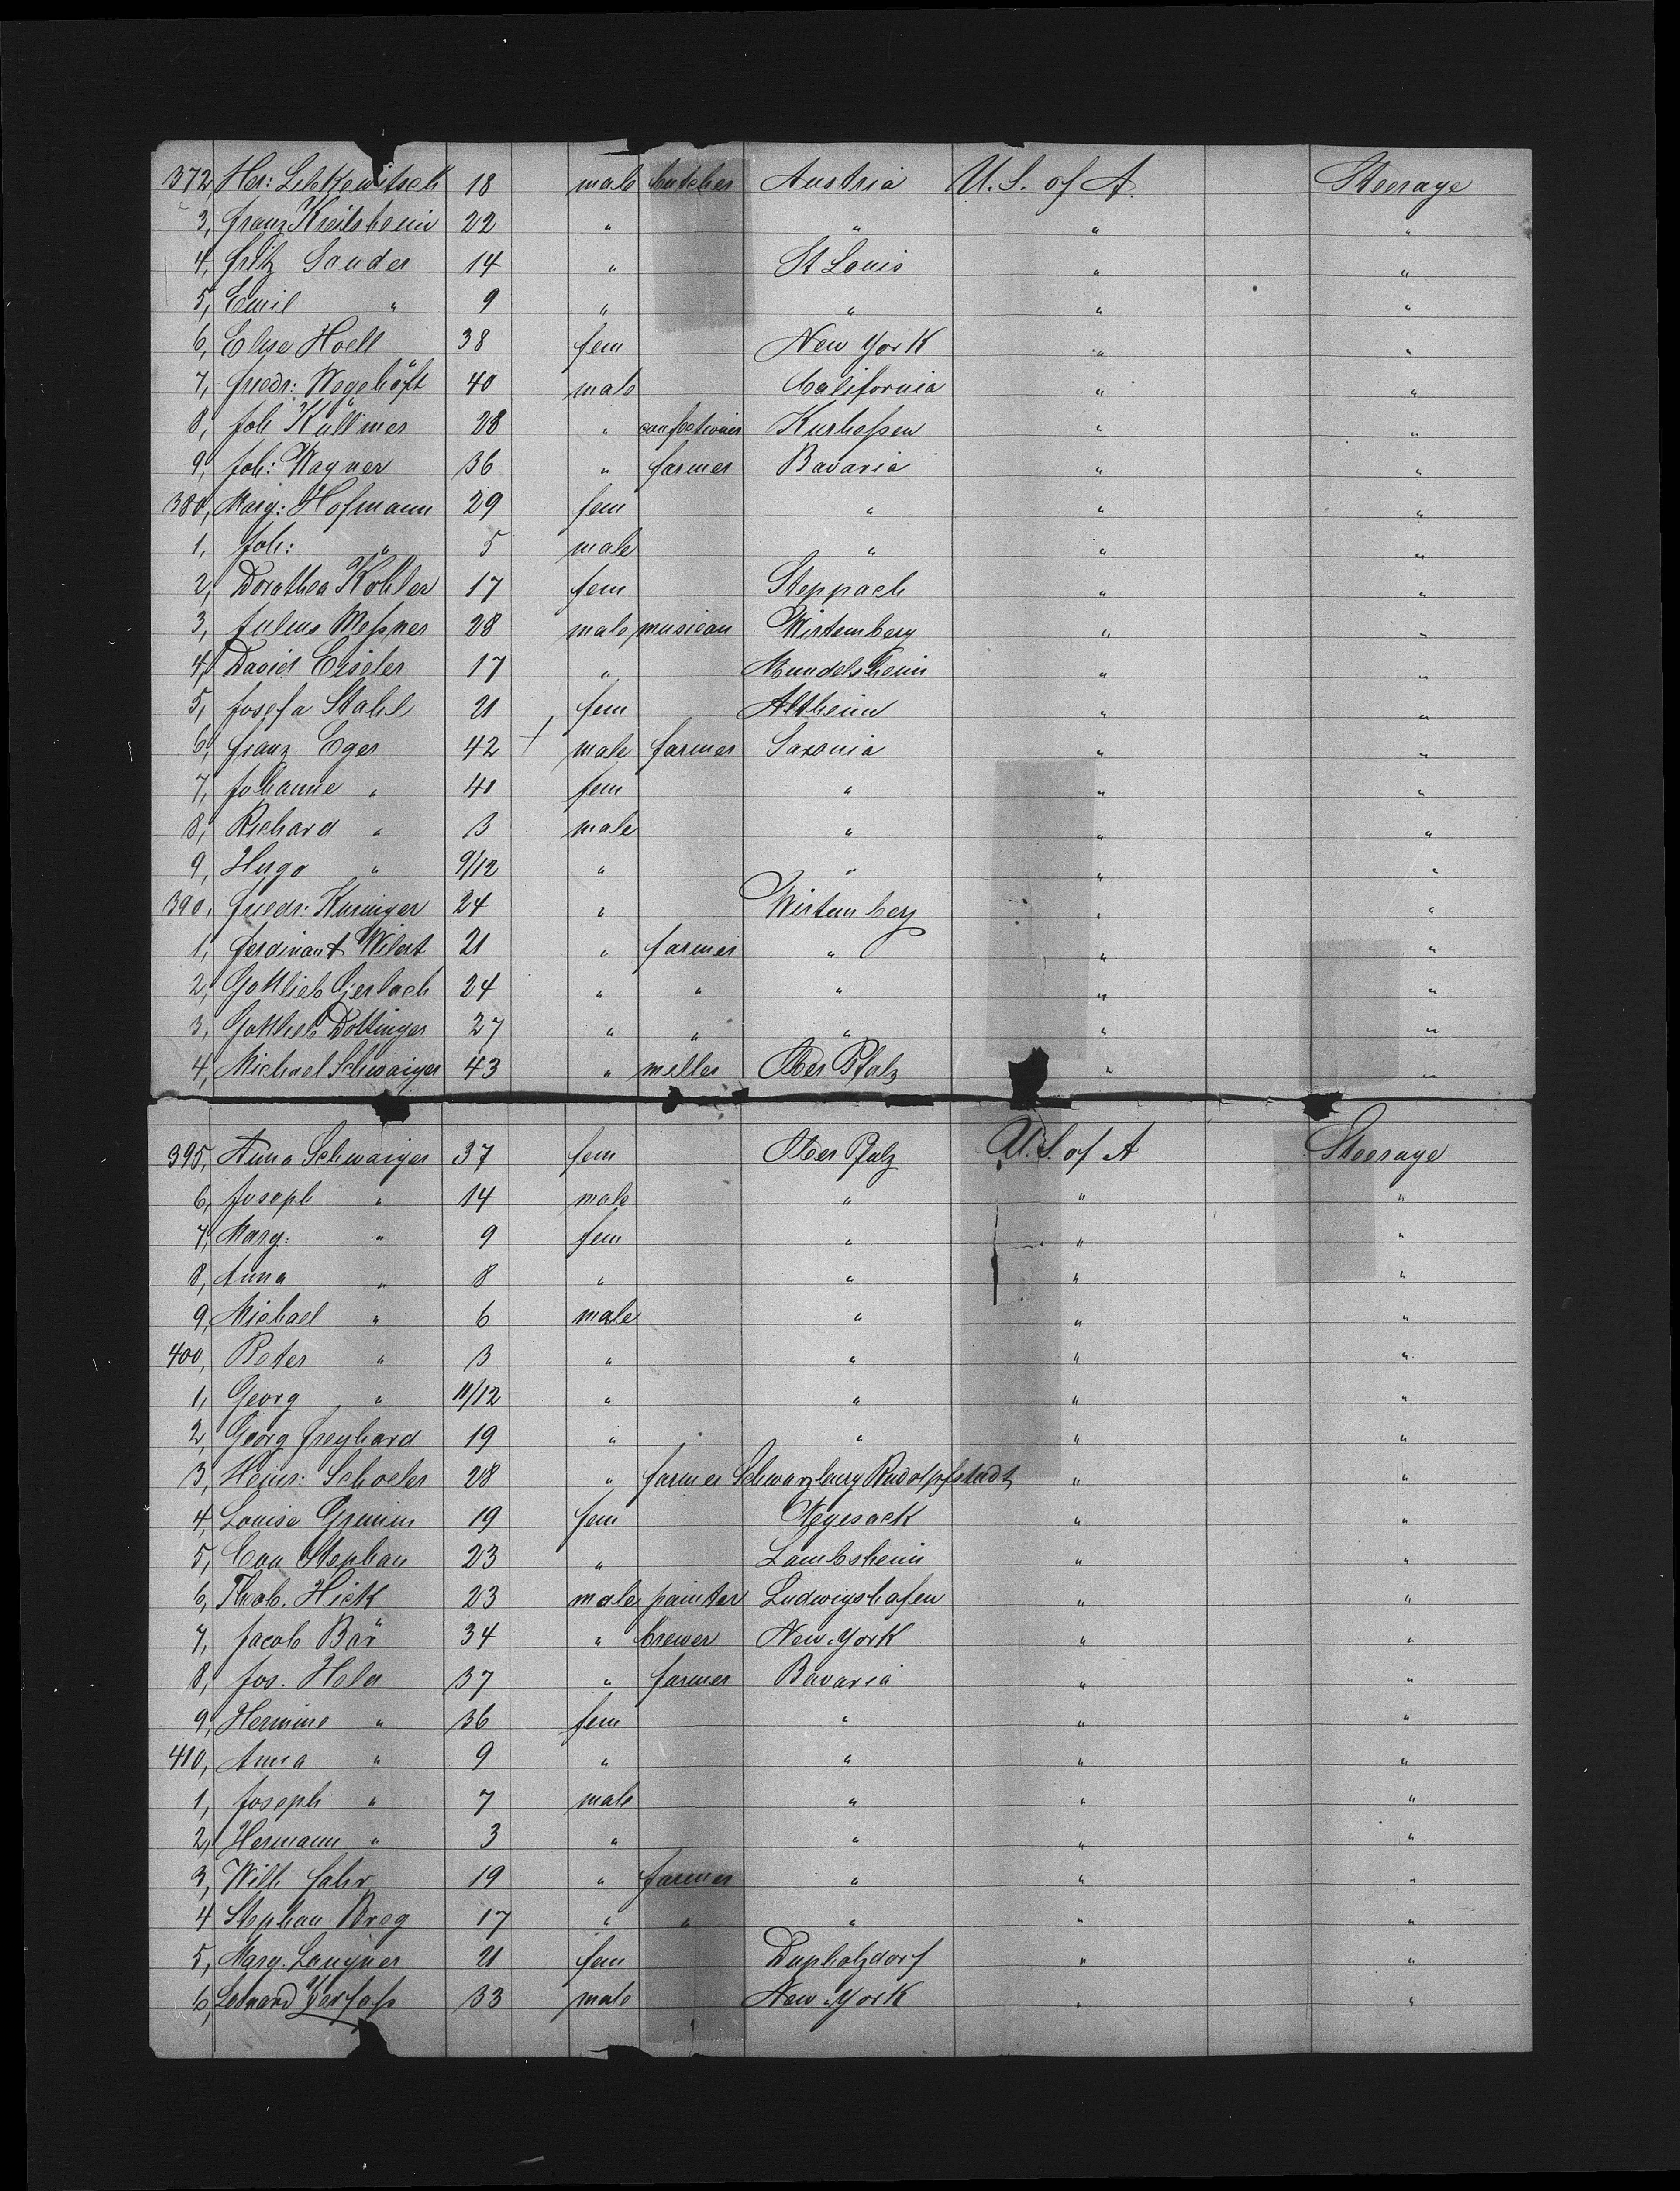 372, Her: Lebkowitsch 18 male butcher Austria U. S. of A. Steerage
3, Franz Kreilsheim 22 " " " "
4, Fritz Sander 14 " St Louis " "
5, Emil " 9 " " " "
6, Elise Hoell 38 fem New York " "
7, Friedr: Wegehöft 40 male California " "
8, Joh Küllmer 28 " confectioner Kurheßen " "
9, Joh: Wagner 36 " farmer Bavaria " "
380, Marg: Hofmann 29 fem " " "
1, Joh: " 5 male " " "
2, Dorothea Kohler 17 fem Steppach " "
3, Julius Meßner 28 male musican Wirtemberg " "
4, David Eiseler 17 " Mundelsheim " "
5, Josefa Stahl 21 fem Altheim " "
6, Franz Eger 42 + male farmer Saxonia " "
7, Johanne " 40 fem " " "
8, Richard " 3 male " " "
9, Hugo " 9/12 " " " "
390, Friedr: Kuringer 24 " Wirtemberg " "
1, Ferdinant Wilert 21 " farmer " " "
2, Gottlieb Gerlach 24 " " " " "
3, Gottlieb Dottinger 27 " " " " "
4, Michael Schwaiger 43 " miller Ober Pfalz " "
395, Anna Schwaiger 37 fem Ober Pfalz U. S. of A Steerage
6, Joseph " 14 male " " "
7, Marg: " 9 fem " " "
8, Anna " 8 " " " "
9, Michael " 6 male " " "
400, Peter " 3 " " " "
1, Georg " 11/12 " " " "
2, Georg Freyhard 19 " " " "
3, Heinr: Schoeler 28 " farmer Schwarzburg Rudolpfstadt " "
4, Louise Grimm 19 fem Vegesack " "
5, Eva Stephan 23 " Lambsheim " "
6, Theob. Hick 23 male painter Ludwigshafen " "
7, Jacob Bär 34 " brewer New York " "
8, Jos. Held 37 " farmer Bavaria " "
9, Hermine " 36 fem " " "
410, Anna " 9 " " " "
1, Joseph " 7 male " " "
2, Hermann " 3 " " " "
3, Wilh Fahr 19 " farmer " " "
4 Stephan Breg 17 " " " " "
5, Marg. Langner 21 fem " "
6, Leonard 33 male New York " "